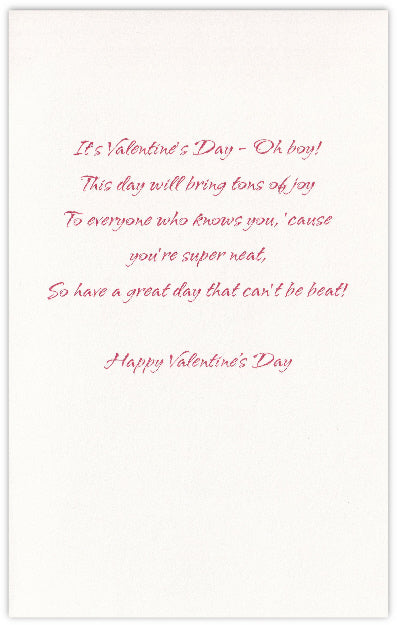 It's Valentine's Day - Oh boy!
This day will bring tons of joy
To everyone who knows you, 'cause
you're super neat,
So have a great day that can't be beat!
Happy Valentine's Day